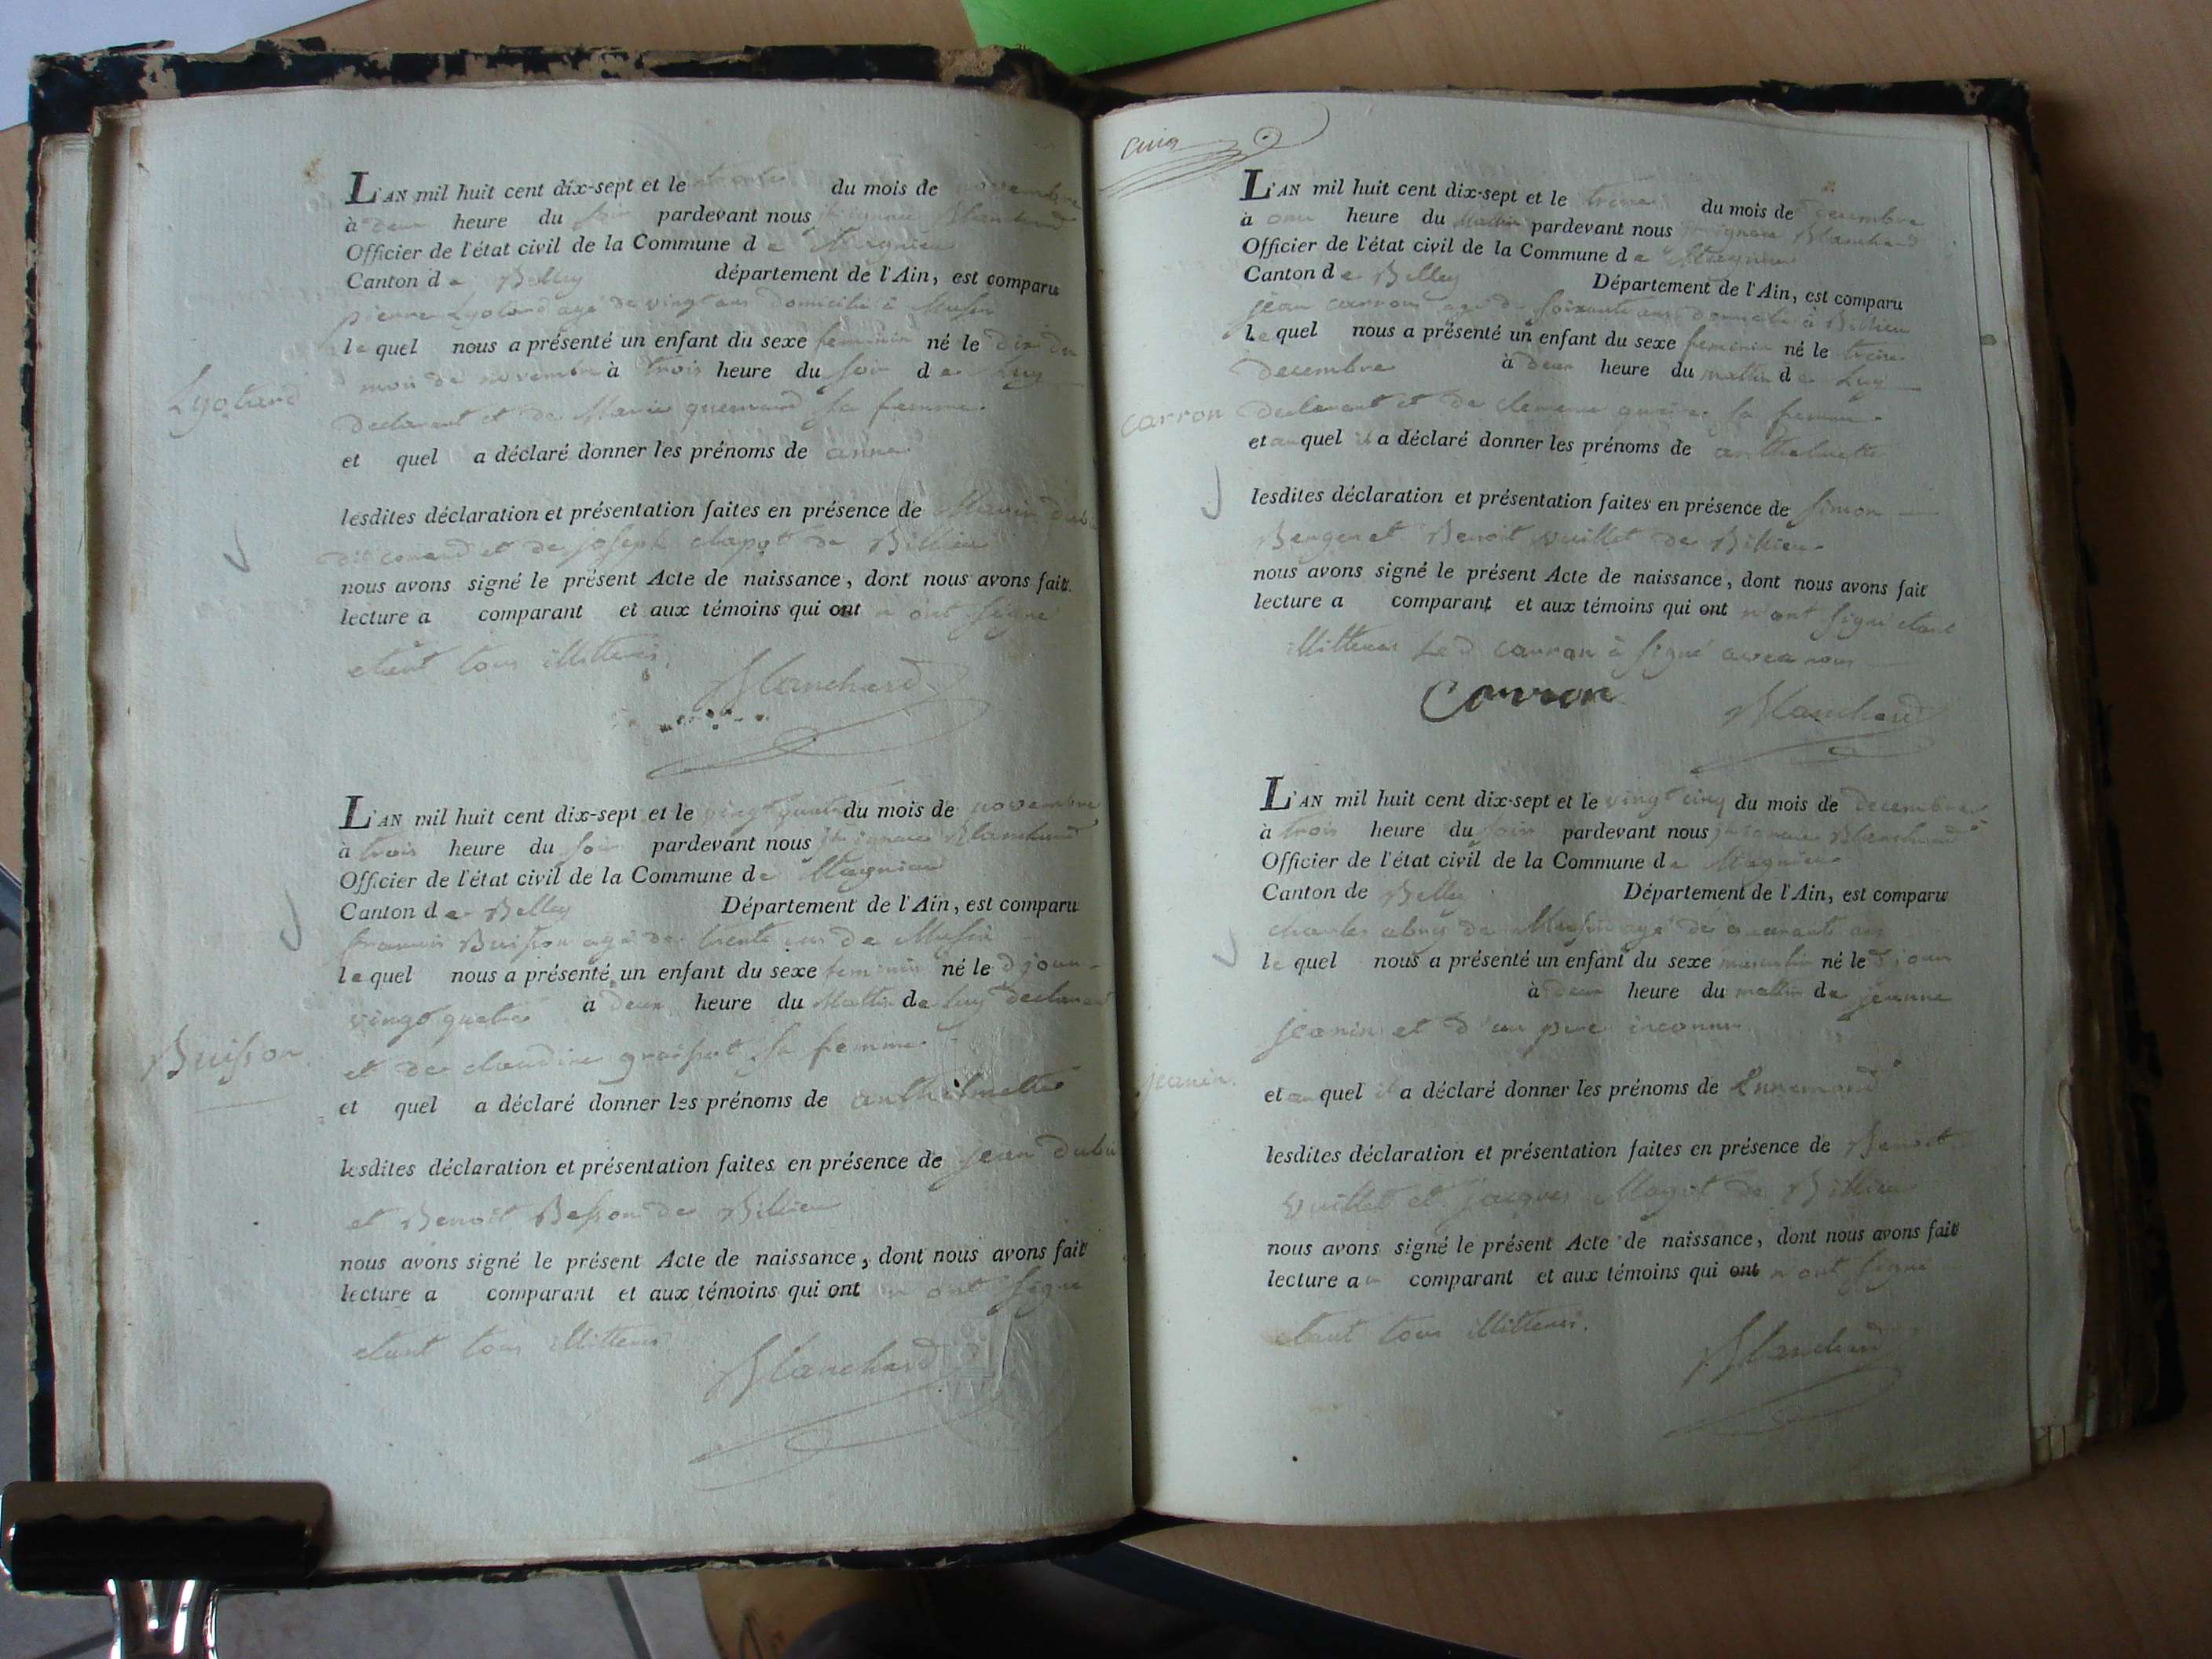 L'AN mil huit cent dix-sept et le du mois de novembre
à deux heure du soir pardevant nous ignace Blanchard
Officier de l'état civil de la Commune de Magnieu
Canton de Belley département de l'Ain, est comparu
pierre Lyotard agé de vingt ans domicilié à Musin
lequel nous a présenté un enfant du sexe feminin né le dix du
mois de novembre à trois heure du soir de Luy
Lyotard
declarant et de Marie sa femme.
et quel a déclaré donner les prénoms de anne
lesdites déclaration et présentation faites en présence de
dit et de joseph clapot de Billieu
nous avons signé le présent Acte de naissance, dont nous avons fait
lecture a comparant et aux témoins qui ont n ont signé
etant tous illitterés.
Blanchard
L'AN mil huit cent dix-sept et le vingt quatre du mois de novembre
à trois heure du soir pardevant nous ignace Blanchard
Officier de l'état civil de la Commune de Magnieu
Canton de Belley Département de l'Ain, est comparu
francois Buisson agé de trente ans de Musin
lequel nous a présenté un enfant du sexe feminin né le d jour
vingt quatre à deux heure du Mattin de luy declarant
Buisson
et de claudine sa femme.
et quel a déclaré donner les prénoms de anthelmette
lesdites déclaration et présentation faites en présence de jean
et Benoit Besson de Billieu
nous avons signé le présent Acte de naissance, dont nous avons fait
lecture a comparant et aux témoins qui ont n ont signé
etant tous illitterés.
Blanchard
cinq
L'AN mil huit cent dix-sept et le treize du mois de decembre
à onze heure du Mattin pardevant nous ignace Blanchard
Officier de l'état civil de la Commune de Magnieu
Canton de Belley Département de l'Ain, est comparu
jean carron agé de soixante ans domicilié à Billieu
lequel nous a présenté un enfant du sexe feminin né le treize
decembre à deux heure du mattin de Luy
carron
declarant et de clemence sa femme.
et auquel il a déclaré donner les prénoms de anthelmette
lesdites déclaration et présentation faites en présence de simon
Berger et Benoit vuillet de Billieu
nous avons signé le présent Acte de naissance, dont nous avons fait
lecture a comparant et aux témoins qui ont n'ont signé etant
illitteres Le d carron à signé avec nous
Carron
Blanchard
L'AN mil huit cent dix-sept et le vingt cinq du mois de decembre
à trois heure du soir pardevant nous ignace Blanchard
Officier de l'état civil de la Commune de Magnieu
Canton de Belley Département de l'Ain, est comparu
charles de Musin agé de quarante ans
lequel nous a présenté un enfant du sexe masculin né le d jour
à deux heure du mattin de jeanne
jeanin et d'un pere inconnu
jeanin.
et auquel il a déclaré donner les prénoms de Ennemond
lesdites déclaration et présentation faites en présence de Benoit
vuillet et jacques Magit de Billieu
nous avons signé le présent Acte de naissance, dont nous avons fait
lecture au comparant et aux témoins qui ont n ont signé
etant tous illitterés.
Blanchard